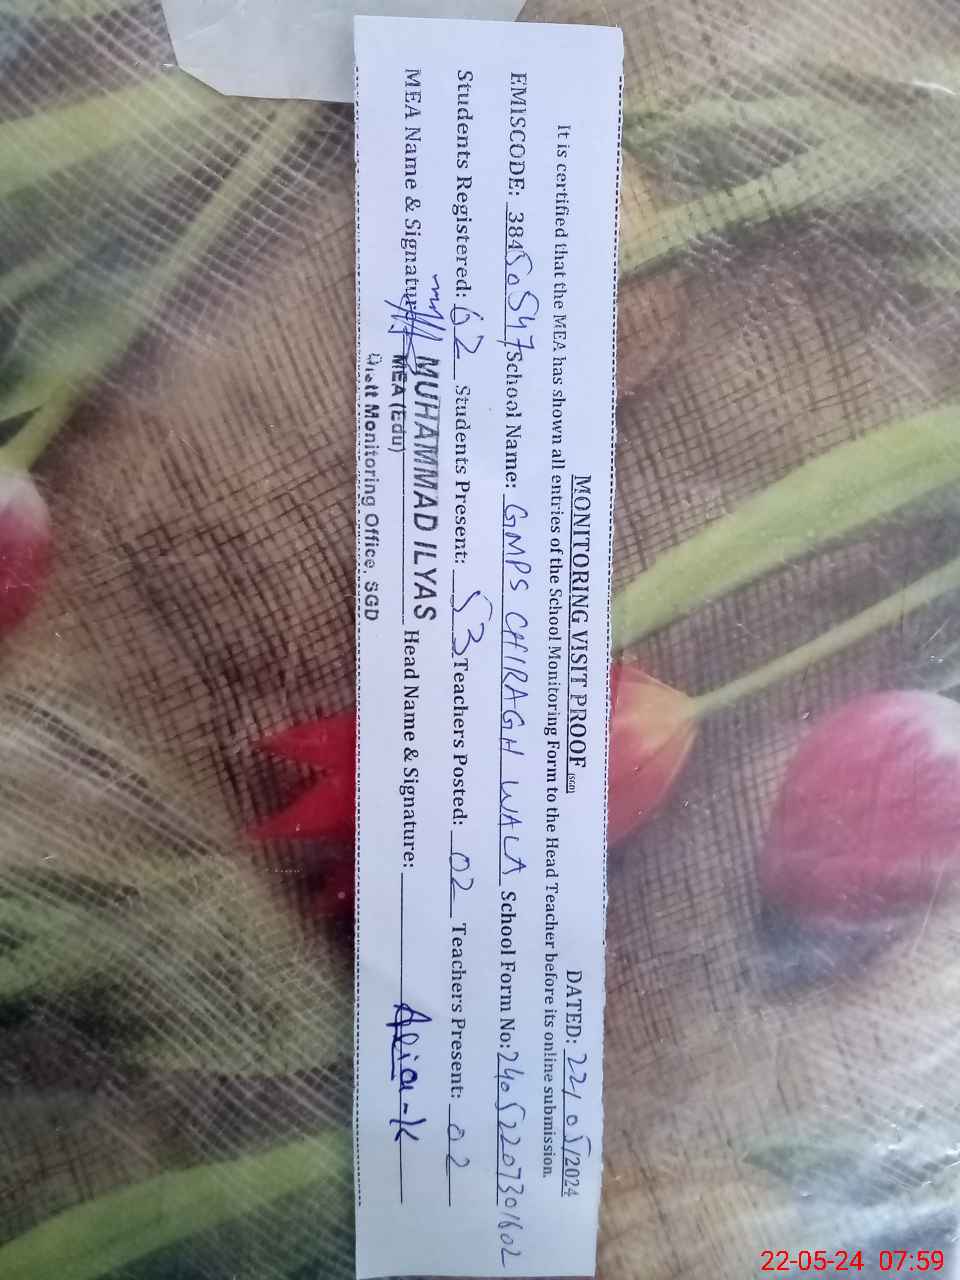 MONITORING VISIT PROOF (SGD) DATED: 22/05/2024
It is certified that the MEA has shown all entries of the School Monitoring Form to the Head Teacher before its online submission.
EMISCODE: 38450547 School Name: GMPS CHIRAGH WALA School Form No: 24052207301602
Students Registered: 62 Students Present: 53 Teachers Posted: 02 Teachers Present: 02
MEA Name & Signature: MUHAMMAD ILYAS Head Name & Signature:
MEA (Edu)
Monitoring Office, SGD
22-05-24 07:59